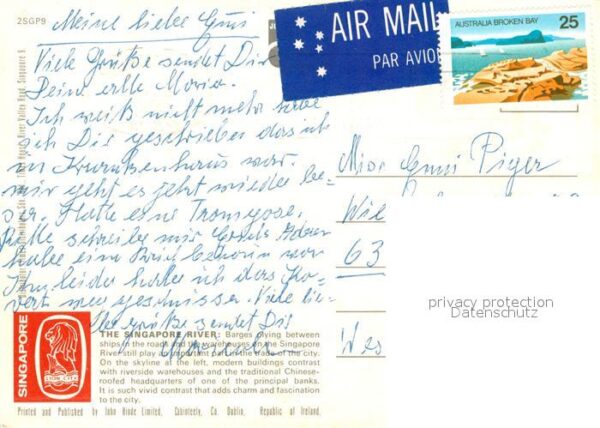 2SGP9
Meine liebe Guni
Viele Grüße sendet Dir
Deine alte Maria.
Ich weiß nicht mehr habe
ich Dir geschrieben das ich
im Krankenhaus war.
mir geht es jetzt wieder bes-
ser. Hatte eine
Bitte schreibe mir
habe
leider habe ich das
vert weg geschmissen. Viele lie-
be Grüße sendet Dir
AIR MAIL
PAR AVION
AUSTRALIA BROKEN BAY 25
Miss Guni Piger
Wie
63
Wes
privacy protection
Datenschutz
SINGAPORE
LION CITY
THE SINGAPORE RIVER: Barges plying between
ships in the roads and the warehouses on the Singapore
River still play an important part in the trade of the city.
On the skyline at the left, modern buildings contrast
with riverside warehouses and the traditional Chinese-
roofed headquarters of one of the principal banks.
It is such vivid contrast that adds charm and fascination
to the city.
Printed and Published by John Hinde Limited, Cabinteely, Co. Dublin, Republic of Ireland.
River Valley Road, Singapore 9.